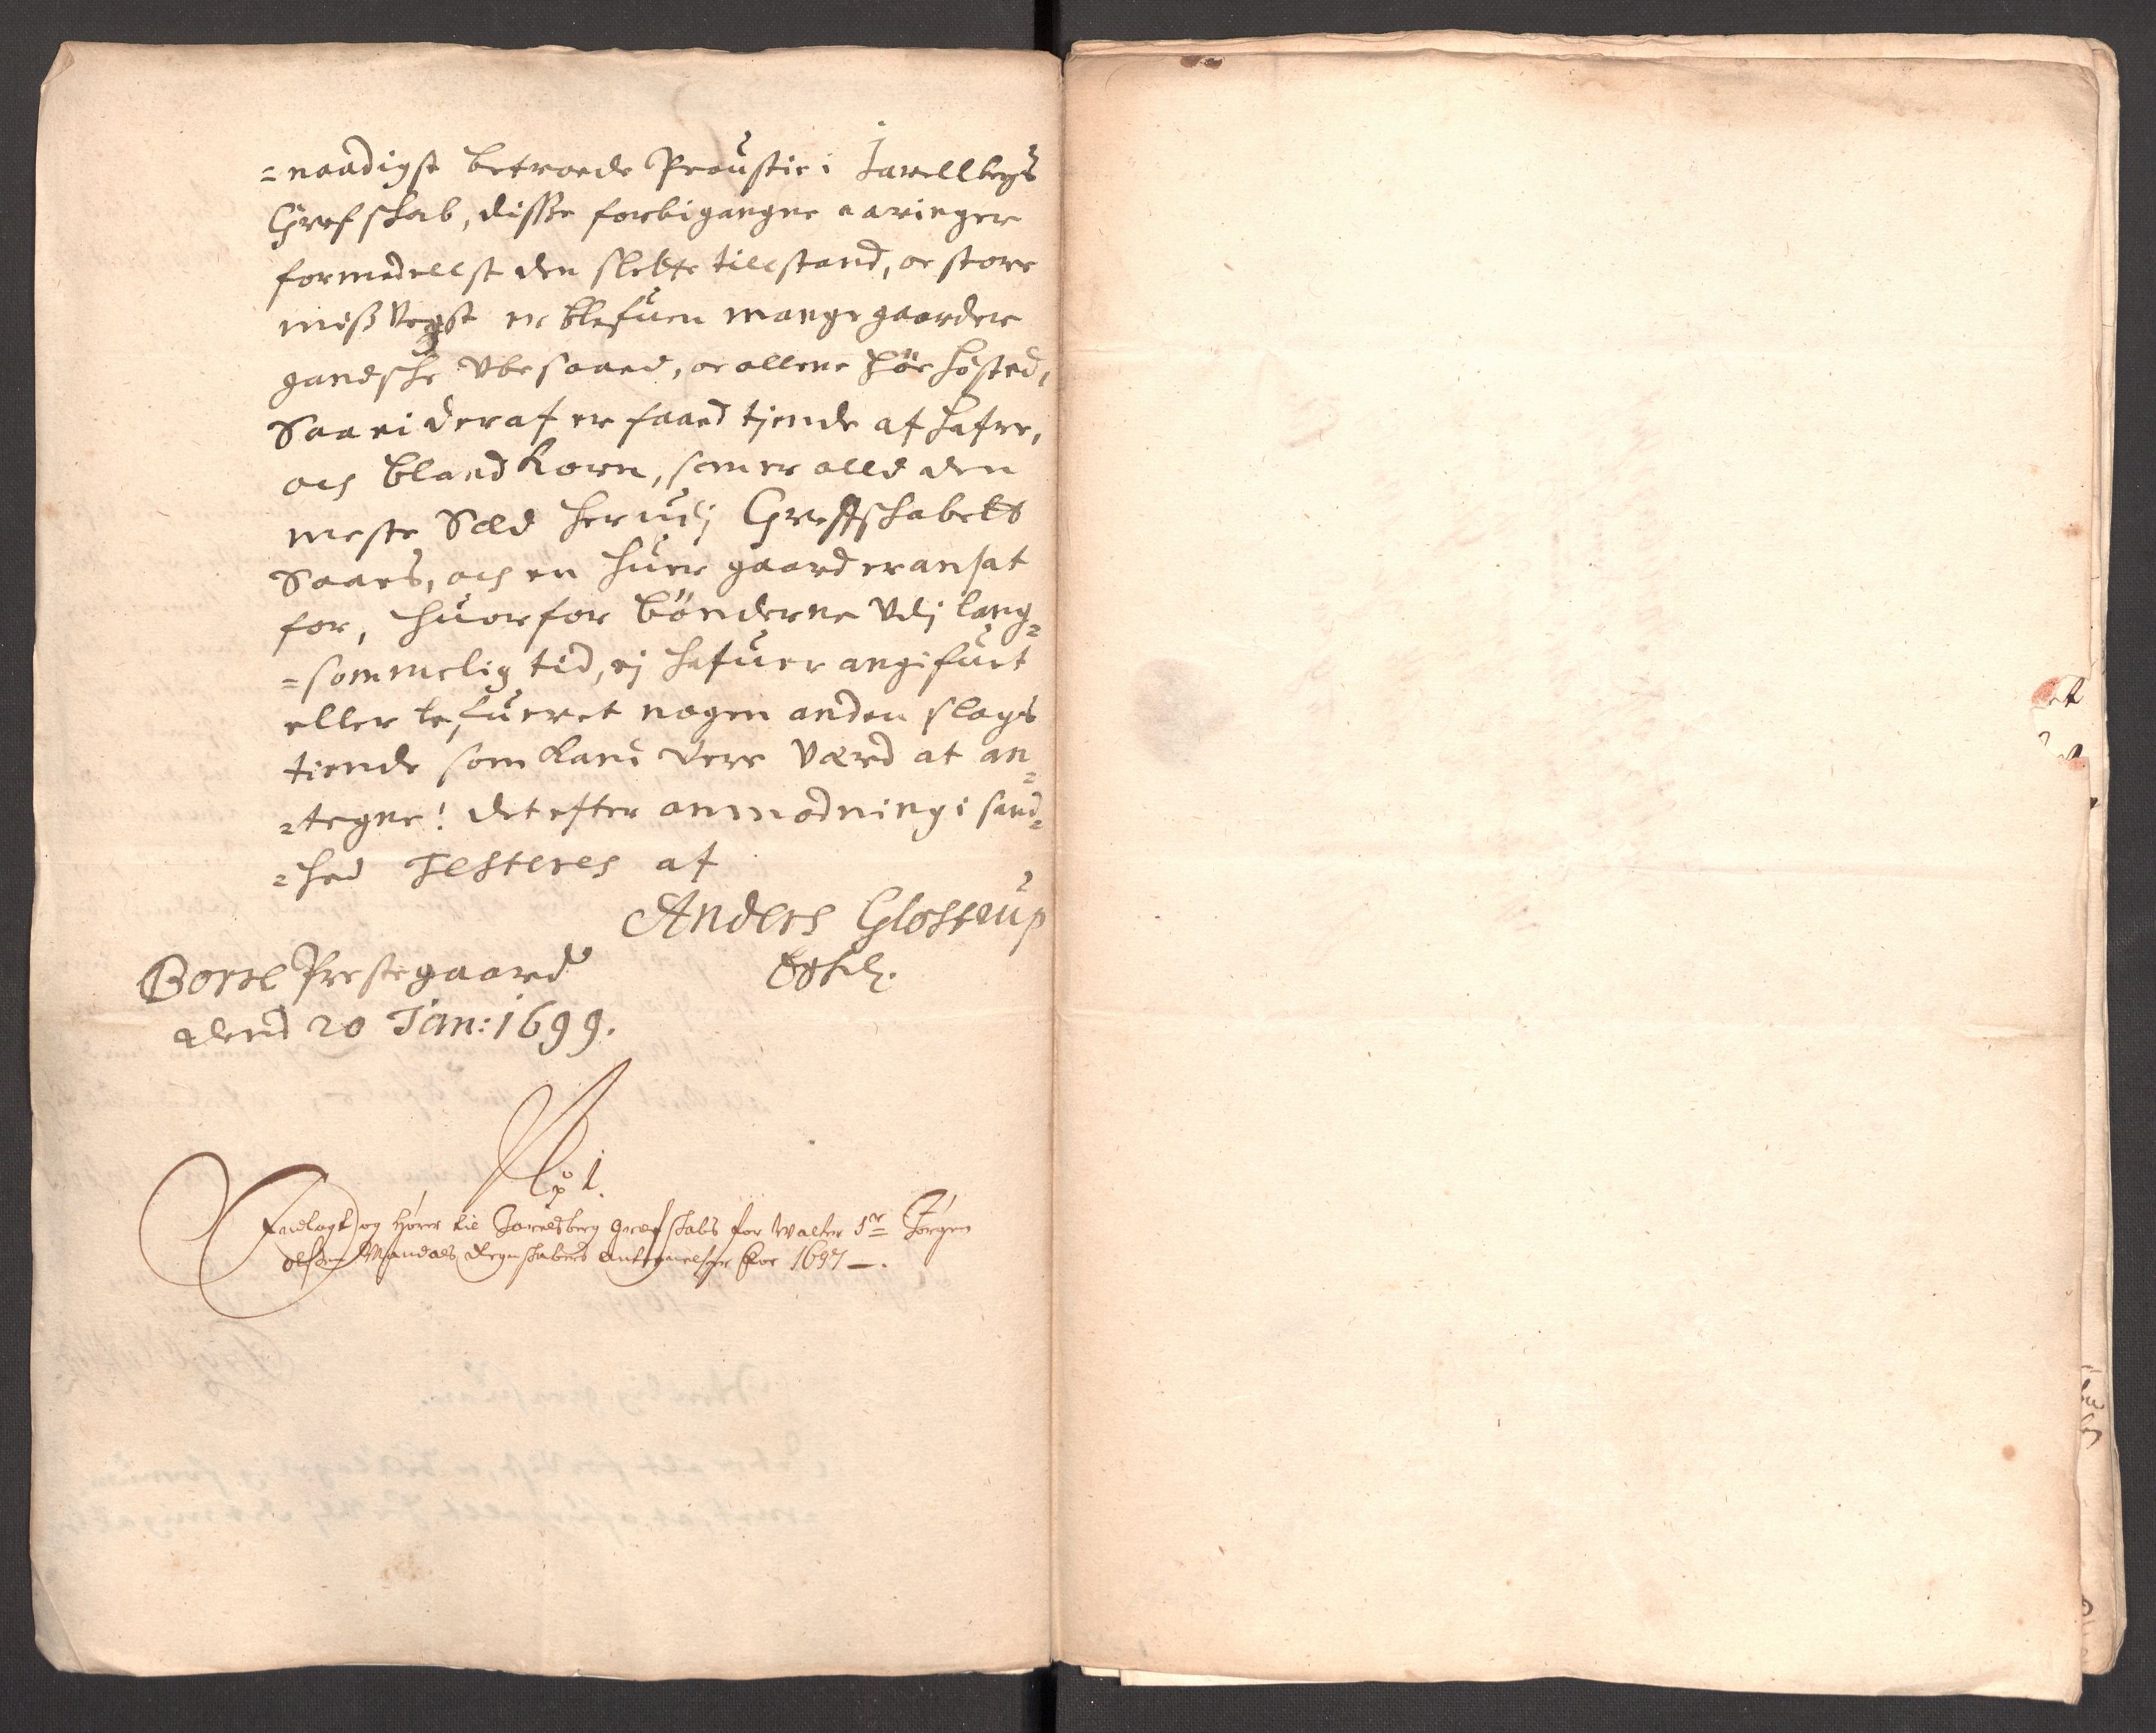 =naadigst betroede Proustie i Jarellbergs
Grefskab, disse forbigangne aaringer
formedellst den slette tillstand, oc store
missvegst er blefuen mange gaarder
gandske Vbesaaed, oc allene Höe hösted,
Saa ei deraf er faaed tjende af hafre,
och blandkorn, som er alld den
meste Sæd her udj Grefskabett
Saaes, och en huer gaard er ansat
for, huorfor bönderne Vdj lang=
=sommelig tid, ej hafuer angifuet
eller lefueret nogen anden slags
tiende som kand vere værd at an=
=tegne! det efter anmodning i sand=
=hed Testeres af
Anders Glostrup
Borre Prestegaard
dend 20 Jan: 1699.
No 1.
Indlagt og hører til Jarelsberg Grefskabs for Walter Sr Jørgen
olsen Mandals Regnskabers Antegnelsser for 1697 —.